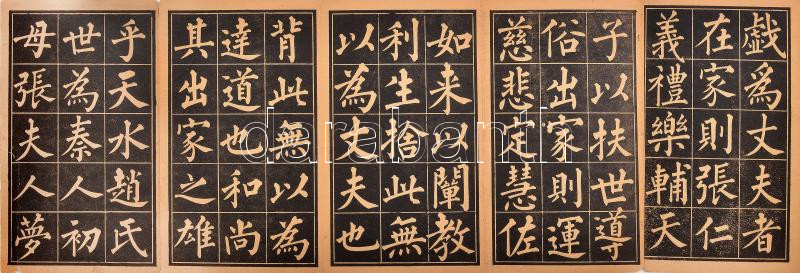 戲爲丈夫者
在家則張仁
義禮樂輔天
子以扶世導
俗出家則運
慈悲定慧佐
如来以闡教
利生捨此無
以為丈夫也
背此無以為
達道也和尚
其出家之雄
乎天水趙氏
世為秦人初
母張夫人夢
darabanth